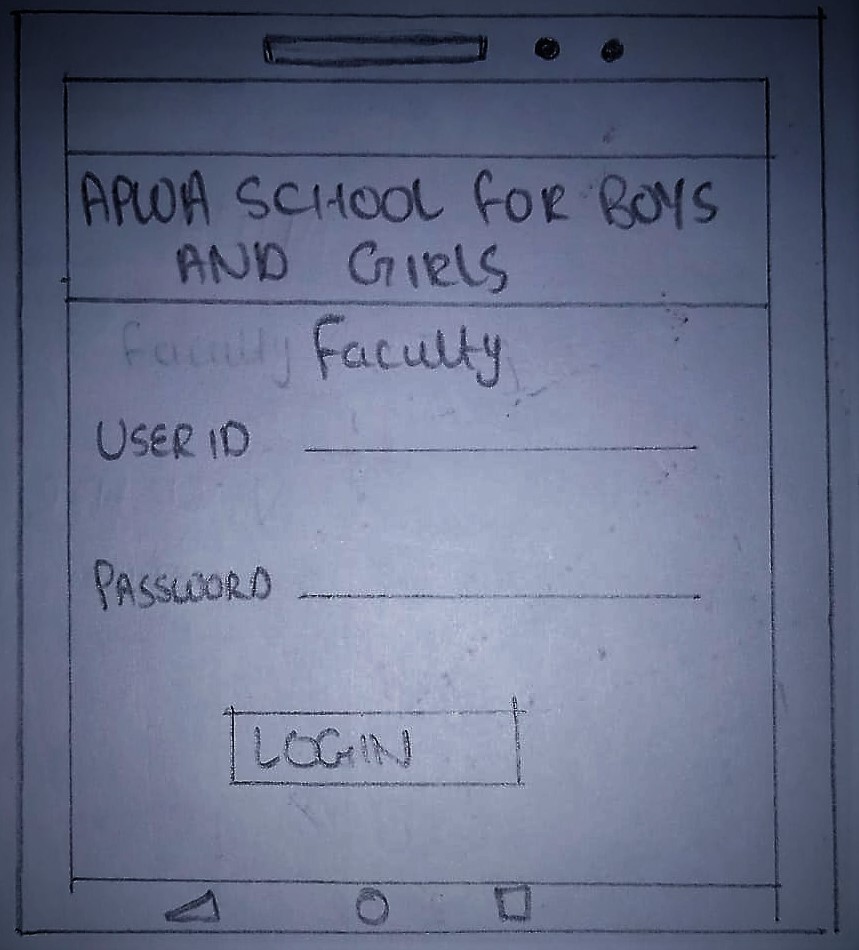 APWA SCHOOL FOR BOYS
AND GIRLS
Faculty Faculty
USER ID
PASSWORD
LOGIN